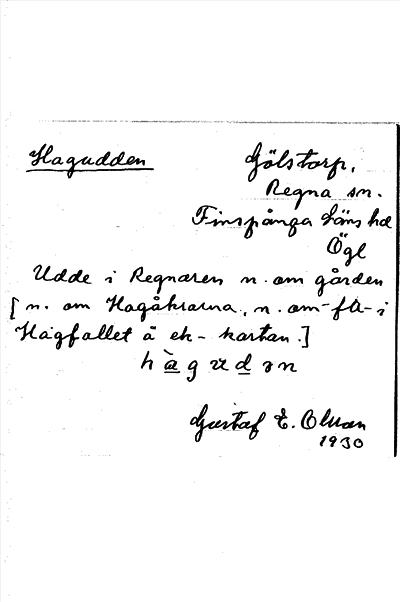 Hagudden
Gölstorp.
Regna sn.
Finspånga läns hd
Ögl
Udde i Regnaren n. om gården
[n. om Hagåkrarna, n. om -fa- i
Hagfallet å ek-kartan.]
Gustaf E. Olsson
1930